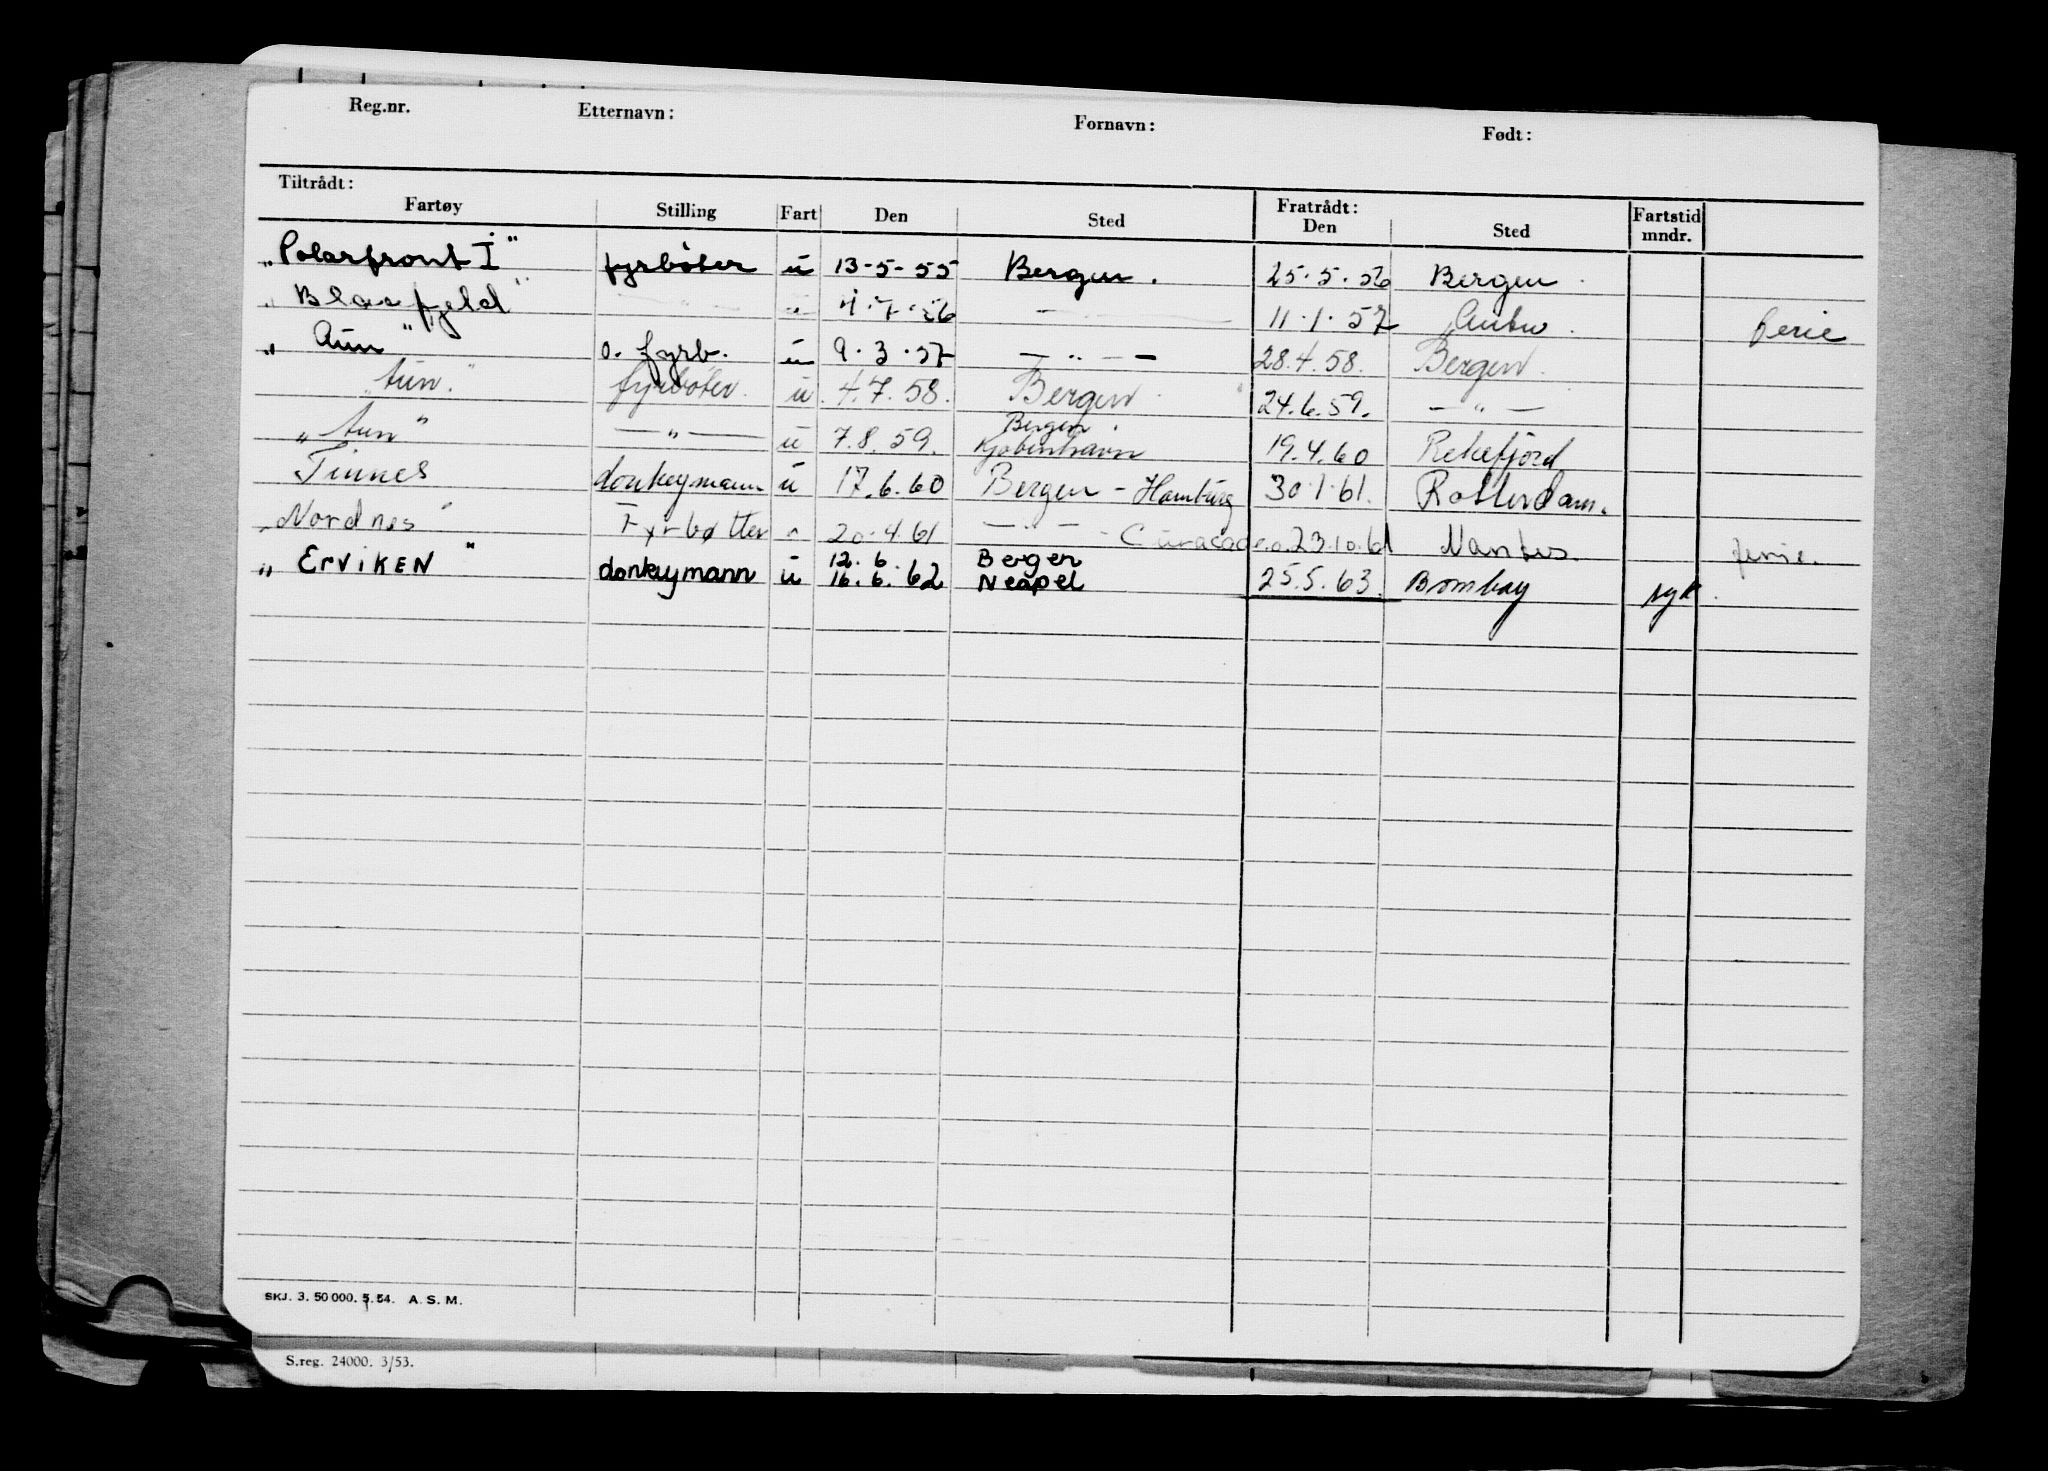 Reg.nr. Etternavn: Fornavn: Født:
Tiltrådt: Fratrådt:
Fartøy Stilling Fart Den Sted Den Sted Fartstid mndr.
„Polarfront I" fyrböter u 13-5-55 Bergen. 25.5.56 Bergen
„Blaafjeld" — " — " 4.7.56 — 11.1.57 Antw. ferie
„Aun" o. fyrb. u 9.3.57 — " — 28.4.58. Bergen.
„Aun." fyrböter. u. 4.7.58. Bergen 24.6.59. — " —
„Aun" — " — u 7.8.59. Bergen. Kjøbenhavn 19.4.60 Rekefjord
Tinnes donkeymann u 17.6.60 Bergen - Hamburg 30.1.61. Rotterdam.
„Nordnes" Fyrbøtter " 20.4.61 — " — - Curacao 23.10.61 Nantes. ferie.
„ErviKEN" donkeymann u 12.6. 16.6.62 Bergen Neapel 25.5.63. Bombay syk.
SKJ. 3. 50 000. 5.54. A. S. M.
S.reg. 24000. 3/53.